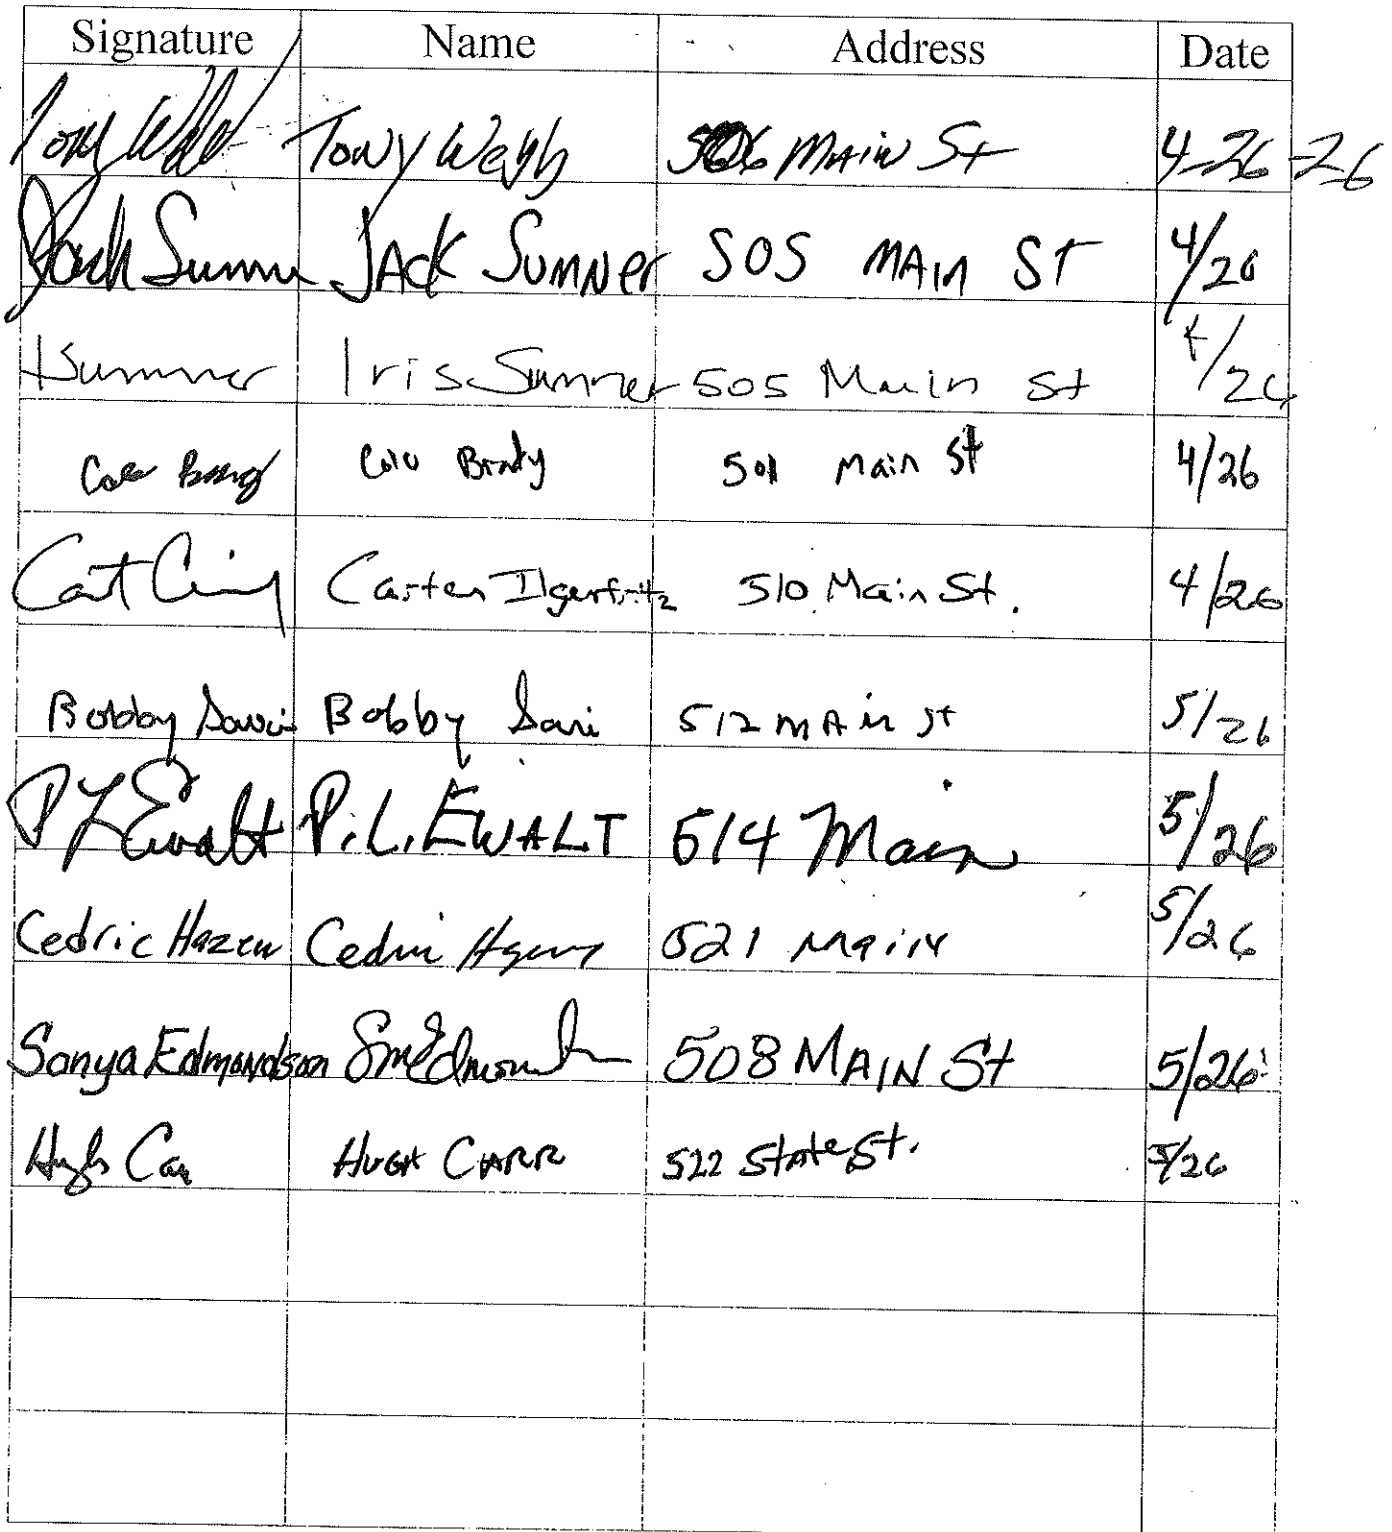 Signature Name Address Date
Tony Tony 506 Main St 4-26-26
Jack Sumner JACK SUMNER 505 MAIN ST 4/26
ISumner Iris Sumner 505 Main St 4/26
Brady 501 Main St 4/26
Carter Ilgenfritz 510 Main St. 4/26
Bobby Bobby 512 MAin st 5/26
P L Ewalt P.L. EWALT 514 Main 5/26
Cedric Hazen Cedric Hazen 521 Main 5/26
Sonya Edmondson SmEdmondson 508 MAIN St 5/26
Hugh Carr HUGH CARR 522 State St. 5/26